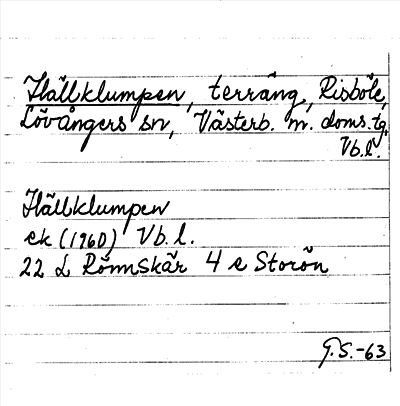 Hällklumpen, terräng, Risböle,
Lövångers sn, Västerb. m. doms. tg.
Vb.l.
Hällklumpen
ek (1960) Vb. l.
22 L Rönnskär 4 e Storön
G.S.-63